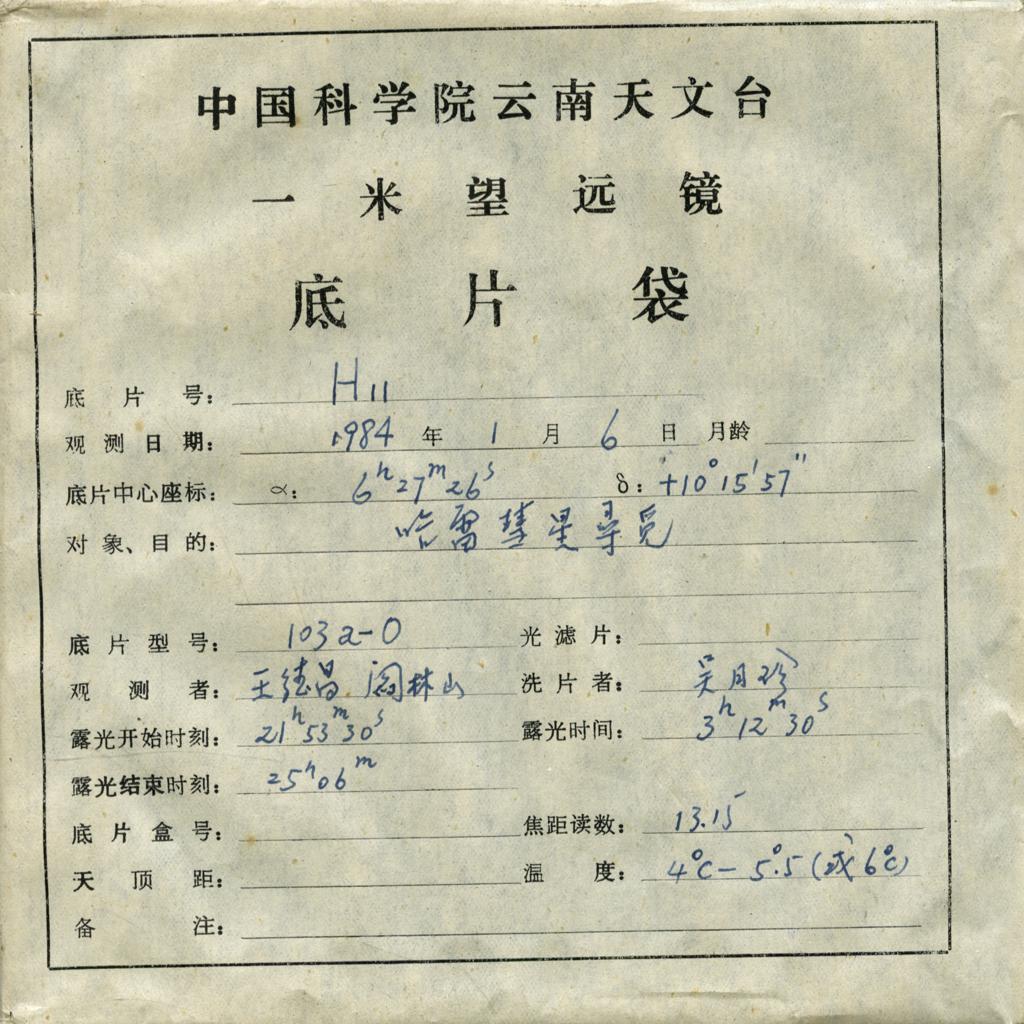 中国科学院云南天文台
一米望远镜
底片袋
底片号: H11
观测日期: 1984 年 1 月 6 日 月龄
底片中心座标: α: 6h27m26s δ: +10°15′57″
对象、目的: 哈雷彗星寻觅
底片型号: 103a-O 光滤片:
观测者: 王德昌 阎林山 洗片者: 吴月珍
露光开始时刻: 21h53m30s 露光时间: 3h12m30s
露光结束时刻: 25h06m
底片盒号: 焦距读数: 13.15
天顶距: 温度: 4°C-5°.5(或6°C)
备注: